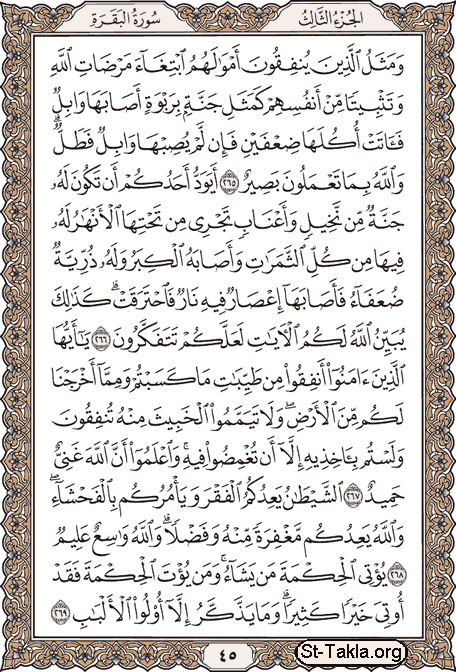 سُورَةُ البَقَرَةِ الجُزْءُ الثَّالِثُ
وَمَثَلُ الَّذِينَ يُنفِقُونَ أَمْوَٰلَهُمُ ٱبْتِغَآءَ مَرْضَاتِ ٱللَّهِ
وَتَثْبِيتًا مِّنْ أَنفُسِهِمْ كَمَثَلِ جَنَّةٍۭ بِرَبْوَةٍ أَصَابَهَا وَابِلٌ
فَـَٔاتَتْ أُكُلَهَا ضِعْفَيْنِ فَإِن لَّمْ يُصِبْهَا وَابِلٌ فَطَلٌّ ۗ
وَٱللَّهُ بِمَا تَعْمَلُونَ بَصِيرٌ ٢٦٥ أَيَوَدُّ أَحَدُكُمْ أَن تَكُونَ لَهُۥ
جَنَّةٌ مِّن نَّخِيلٍ وَأَعْنَابٍ تَجْرِى مِن تَحْتِهَا ٱلْأَنْهَٰرُ لَهُۥ
فِيهَا مِن كُلِّ ٱلثَّمَرَٰتِ وَأَصَابَهُ ٱلْكِبَرُ وَلَهُۥ ذُرِّيَّةٌ
ضُعَفَآءُ فَأَصَابَهَآ إِعْصَارٌ فِيهِ نَارٌ فَٱحْتَرَقَتْ ۗ كَذَٰلِكَ
يُبَيِّنُ ٱللَّهُ لَكُمُ ٱلْـَٔايَٰتِ لَعَلَّكُمْ تَتَفَكَّرُونَ ٢٦٦ يَٰٓأَيُّهَا
ٱلَّذِينَ ءَامَنُوٓا۟ أَنفِقُوا۟ مِن طَيِّبَٰتِ مَا كَسَبْتُمْ وَمِمَّآ أَخْرَجْنَا
لَكُم مِّنَ ٱلْأَرْضِ ۖ وَلَا تَيَمَّمُوا۟ ٱلْخَبِيثَ مِنْهُ تُنفِقُونَ
وَلَسْتُم بِـَٔاخِذِيهِ إِلَّآ أَن تُغْمِضُوا۟ فِيهِ ۚ وَٱعْلَمُوٓا۟ أَنَّ ٱللَّهَ غَنِىٌّ
حَمِيدٌ ٢٦٧ ٱلشَّيْطَٰنُ يَعِدُكُمُ ٱلْفَقْرَ وَيَأْمُرُكُم بِٱلْفَحْشَآءِ ۖ
وَٱللَّهُ يَعِدُكُم مَّغْفِرَةً مِّنْهُ وَفَضْلًا ۗ وَٱللَّهُ وَٰسِعٌ عَلِيمٌ
٢٦٨ يُؤْتِى ٱلْحِكْمَةَ مَن يَشَآءُ ۚ وَمَن يُؤْتَ ٱلْحِكْمَةَ فَقَدْ
أُوتِىَ خَيْرًا كَثِيرًا ۗ وَمَا يَذَّكَّرُ إِلَّآ أُو۟لُوا۟ ٱلْأَلْبَٰبِ ٢٦٩
٤٥
St-Takla.org